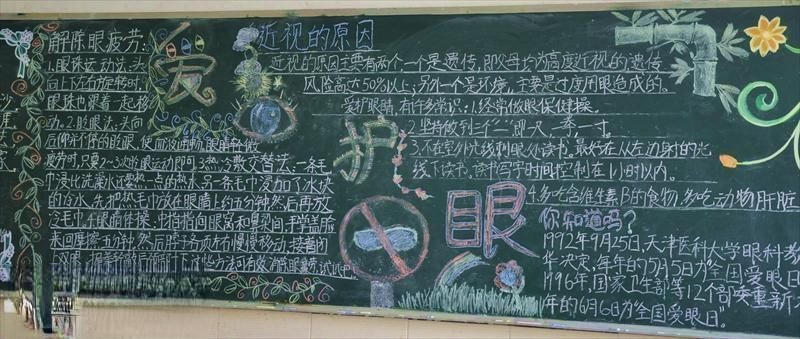 解除眼疲劳:
1.眼珠运动法:头
向上下左右旋转时,
眼珠也跟着一起移
动。2.眨眼法:头向
后仰并不停的眨眼,使血液
疲劳时,只要2～3次眨眼运动即可。3.热冷敷交替法:一条毛
巾浸比洗澡水还要热一点的热水,另一条毛巾浸加了冰块
的冷水,先把热毛巾放在眼睛上约五分钟,然后再放
冷毛巾。4.眼睛体操:中指指向眼窝和鼻梁间,手掌盖脸
来回摩擦五分钟,然后脖子各项左右慢慢移动,接着闭
上双眼,这些方法可有效消除眼疲劳,试试吧
爱
护
眼
近视的原因
近视的原因主要有两个,一个是遗传,即父母均为高度近视的遗传
风险高达50%以上;另外一个是环境,主要是过度用眼造成的。
爱护眼睛,有许多常识:1.经常做眼保健操。
2.坚持做到三个"一"即一尺、一拳、一寸。
3.不在室外光线刺眼外读书。最好在从左边射的光
线下读书,读书写字时间控制在1小时以内。
4.多吃含维生素B的食物,多吃动物肝脏
你知道吗?
1992年9月25日,天津医科大学眼科教
华决定,每年的5月5日为"全国爱眼日
1996年,国家卫生部等12个部委重新
年的6月6日为"全国爱眼日"。